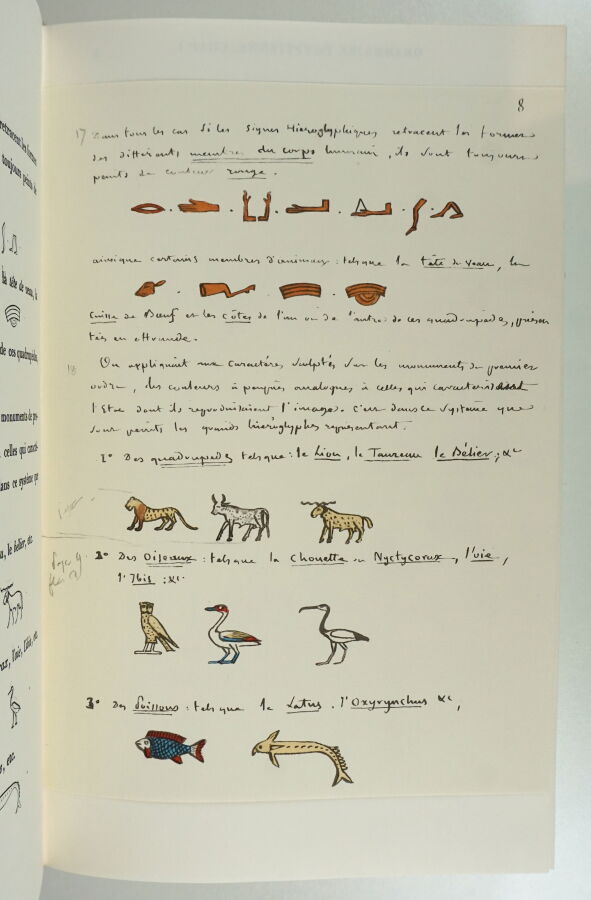 8
17 Dans tous les cas où les signes hiéroglyphiques retracent les formes
des différents membres du corps humain, ils sont toujours
peints de couleur rouge.
ainsi que certains membres d'animaux : tels que la tête de veau, la
Cuisse de Bœuf et les côtes de l'un ou de l'autre de ces quadrupèdes, présen
tés en offrande.
18 On appliquait aux caractères sculptés sur les monuments de premier
ordre, des couleurs à peu près analogues à celles qui caractérisaient
l'Etat dont ils reproduisaient l'image. c'est dans ce système que
sont peints les grands hiéroglyphes représentant.
1° Des quadrupedes tels que : le Lion, le Taureau le Bélier, &c
2° Des Oiseaux : tels que la Chouette ou Nyctycorax, l'oie,
l'Ibis ; &c.
3° Des Poissons : tels que le Latus, l'Oxyrynchus &c,
retracent les formes
toujours peints de
la tête de veau, la
de ces quadrupèdes
monuments de pre-
celles qui carac-
dans ce système que
, le bélier, etc.